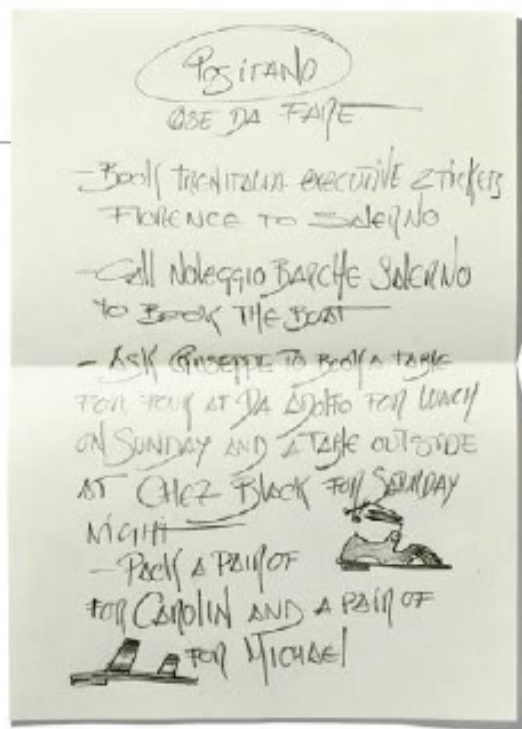 POSITANO
COSE DA FARE
- BOOK TRENITALIA EXECUTIVE 2 TICKETS
FLORENCE TO SALERNO
- CALL NOLEGGIO BARCHE SALERNO
TO BOOK THE BOAT
- ASK GIUSEPPE TO BOOK A TABLE
FOR FOUR AT DA ADOLFO FOR LUNCH
ON SUNDAY AND A TABLE OUTSIDE
AT CHEZ BLACK FOR SATURDAY
NIGHT
- PACK A PAIR OF
FOR CAROLIN AND A PAIR OF
FOR MICHAEL